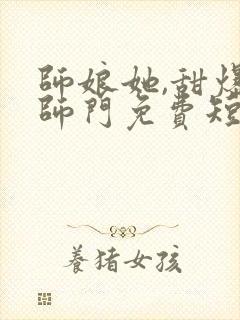 師娘她,甜爆
師門免費短
養猪女孩